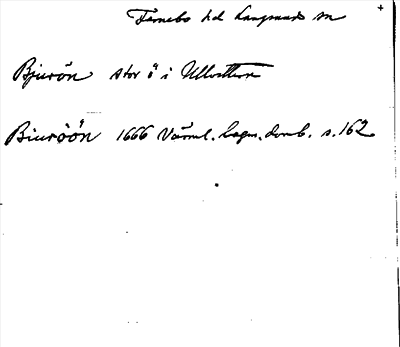 Färnebo hd Långserud sn +
Bjurön stor ö i Ullvettern
Biuröön 1666 Värml. lagm. domb. s. 162